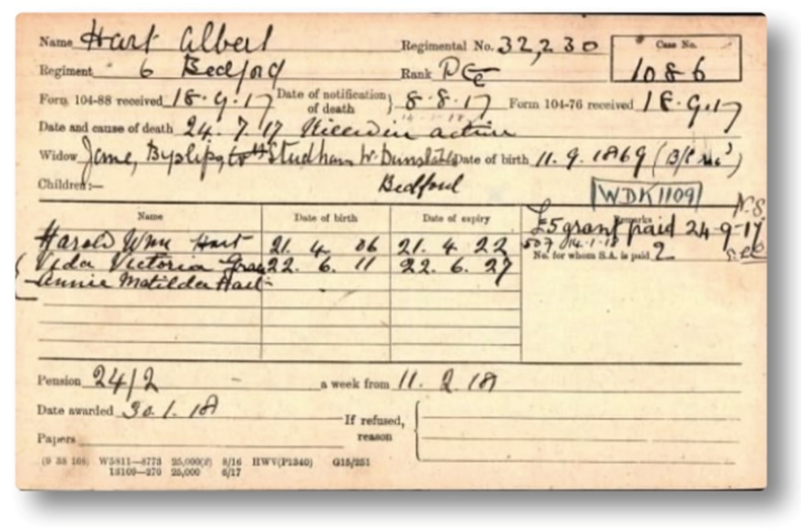 Name Hart Albert Regimental No. 32,230 Case No.
Regiment 6 Bedford Rank Pte 1086
Form 104-88 received 18.9.17 Date of notification of death 8.8.17 Form 104-76 received 18.9.17
Date and cause of death 24.7.17 Killed in action
Widow Jane, Studham Dunstable Date of birth 11.9.1869
Children:— Bedford WDK1109
Name Date of birth Date of expiry Remarks
£5 grant paid 24-9-17
Harold Wm Hart 21. 4. 06 21. 4. 22
No. for whom S.A. is paid 2
Vida Victoria 22. 6. 11 22. 6. 27
Annie Matilda Hart
Pension 24/2 a week from 11. 2. 18
Date awarded 30.1.18 If refused, reason
Papers
(9 38 108) W5811—8773 25,000(2) 8/16 HWV(P1340) G15/251
13109—270 25,000 6/17